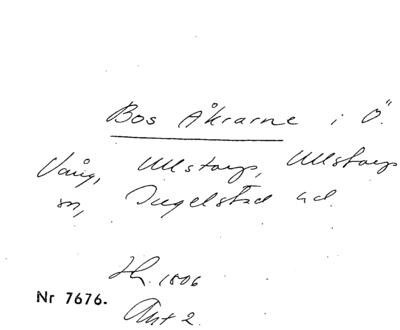 Bos Åkrarne i Ö.
Vång, Ullstorps, Ullstorps
sn, Ingelstad hd.
Hy. 1806
Nr 7676. Akt 2.